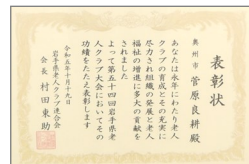 表彰状
奥州市 菅原良耕殿
あなたは永年にわたり老人
クラブの育成とその充実に
尽力され組織の発展と老人
福祉の増進に多大の貢献を
されました
よって第五十四回岩手県老
人クラブ大会においてその
功績をたたえ表彰します
令和五年十月十九日
岩手県老人クラブ連合会
会長 村田東助